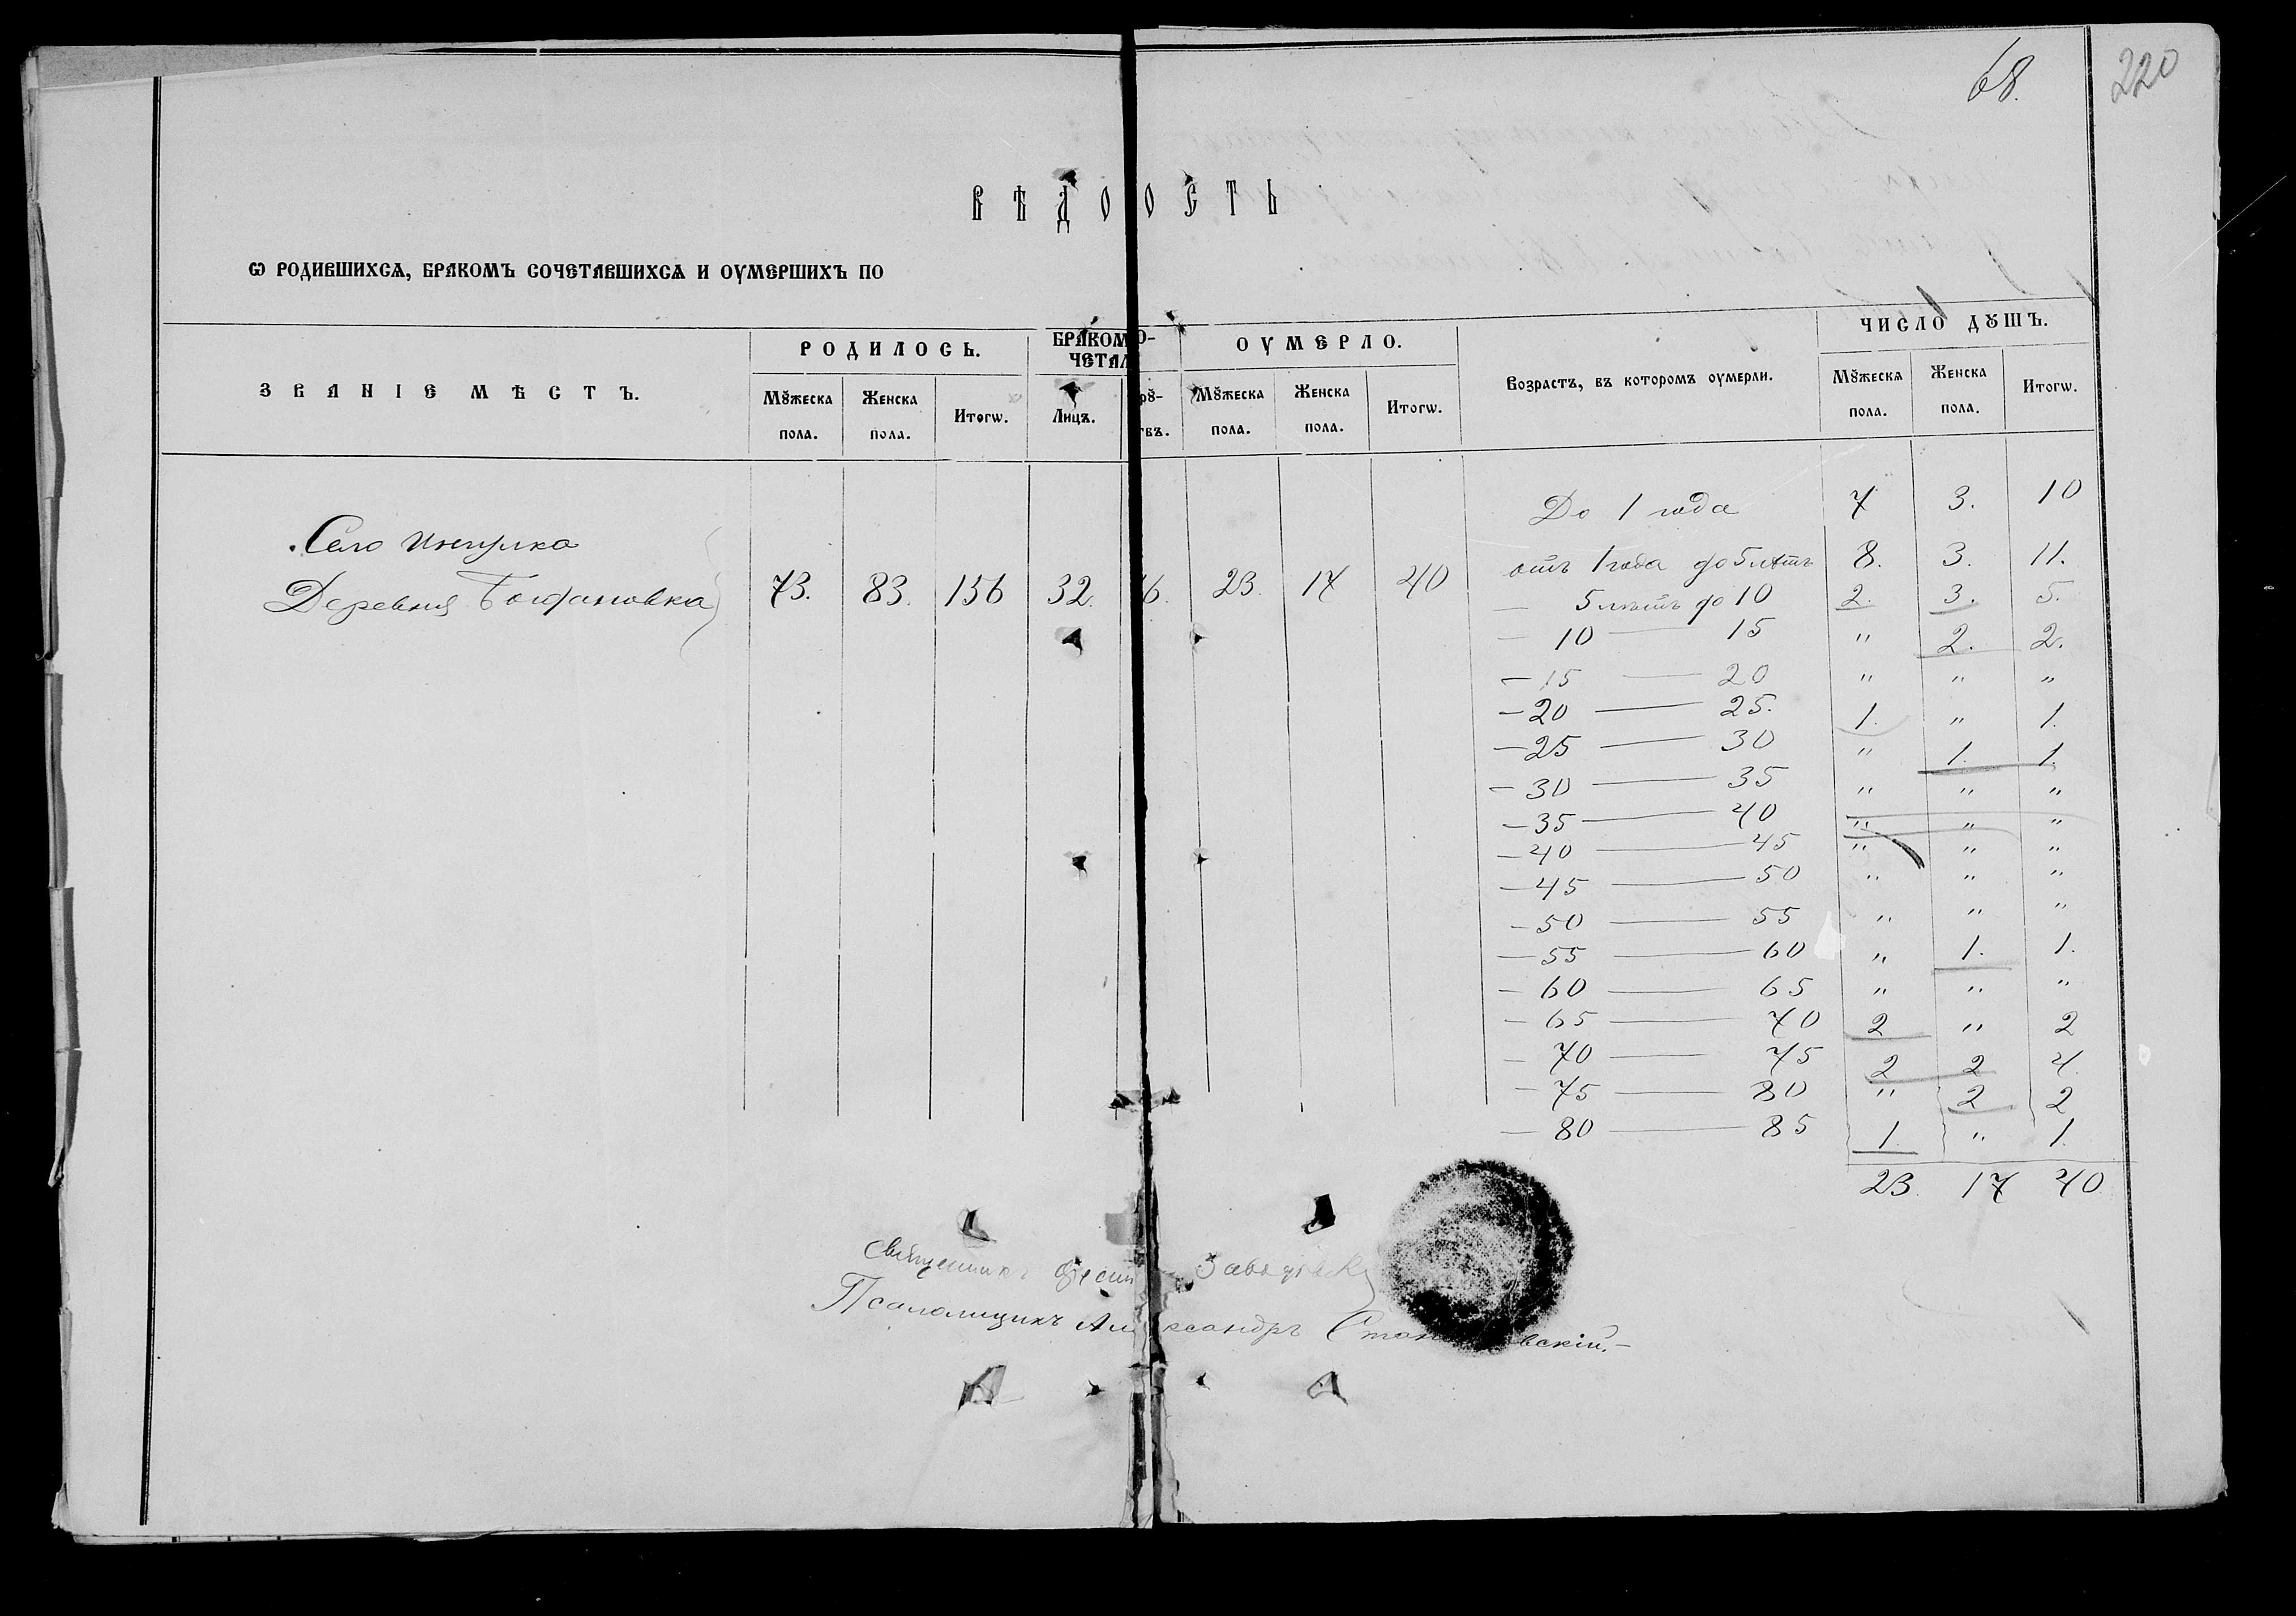 68.
220
ВѢДО ОСТЬ
Ѡ РОДИВШИХСѦ, БРАКОМЪ СОЧЕТАВШИХСѦ И ОУМЕРШИХЪ ПО
ЗВАНІЕ МѢСТЪ. РОДИЛОСЬ. БРАКОМ О- ОУМЕРЛО. Возрастъ, въ которомъ оумерли. ЧИСЛО ДꙊШЪ.
ЧЕТАЛ
МꙊжеска Женска Итогѡ. Лицъ. рꙋ- МꙊжеска Женска Итогѡ. МꙊжеска Женска Итогѡ.
пола. пола. твъ. пола. пола. пола. пола.
До 1 года 7 3. 10
Село
отъ 1 года до 5 лѣтъ 8. 3. 11.
Деревня 73. 83. 156 32. 6. 23. 17 40
— 5 лѣтъ до 10 2. 3. 5.
— 10 — 15 " 2. 2.
— 15 — 20 " " "
— 20 — 25. 1. " 1.
— 25 — 30 " 1. 1.
— 30 — 35 " " "
— 35 — 40 " " "
— 40 — 45 " " "
— 45 — 50 " " "
— 50 — 55 " " "
— 55 — 60 " 1. 1.
— 60 — 65 " " "
— 65 — 70 2 " 2
— 70 — 75 2 2 4
— 75 — 80 " 2 2
— 80 — 85 1. " 1.
23. 17 40.
Священникъ
Псаломщикъ Ал ксандръ Ста вскій.—